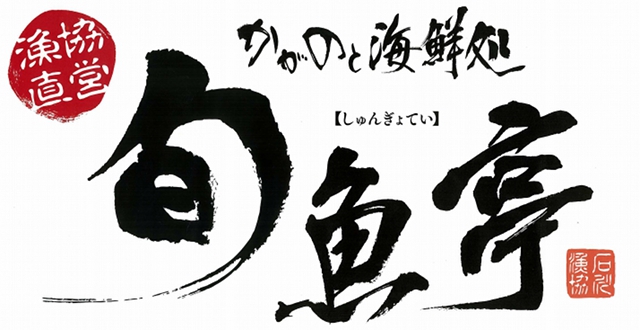 漁協
直営
かがのと海鮮処
【しゅんぎょてい】
旬魚亭
石川
漁協